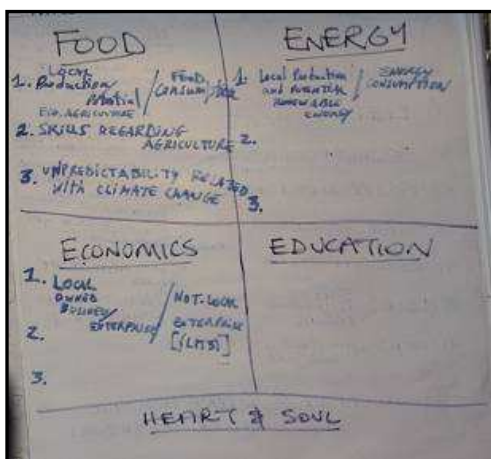 FOOD
1. LOCAL
Production
Potential / FOOD
CONSUMPTION
E.G. AGRICULTURE
2. SKILLS REGARDING
AGRICULTURE
3. UNPREDICTABILITY RELATED
with CLIMATE CHANGE
ENERGY
1. Local Production
and POTENTIAL
RENEWABLE
ENERGY / ENERGY
CONSUMPTION
2.
3.
ECONOMICS
1. LOCAL
OWNED
BUSINESS/
ENTERPRISE / NOT-LOCAL
ENTERPRISE
2.
3.
EDUCATION
HEART & SOUL